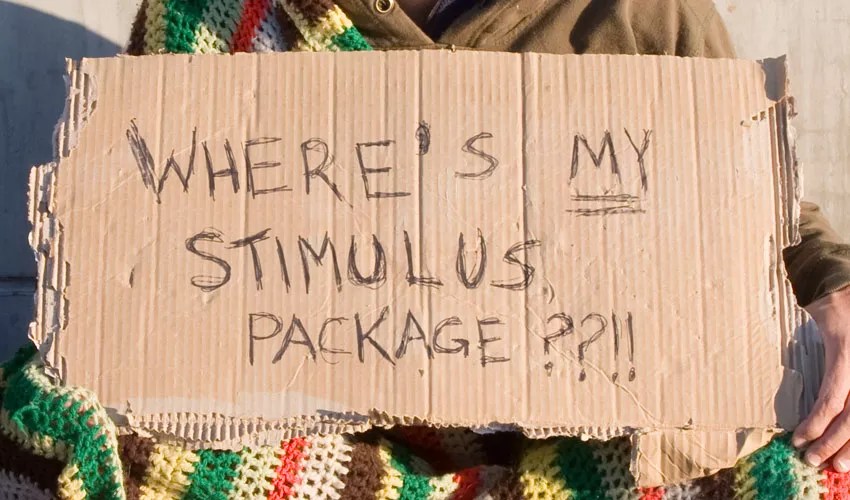 WHERE'S MY
STIMULUS
PACKAGE ??!!